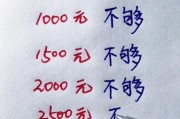 1000元 不够
1500元 不够
2000元 不够
2500元 不